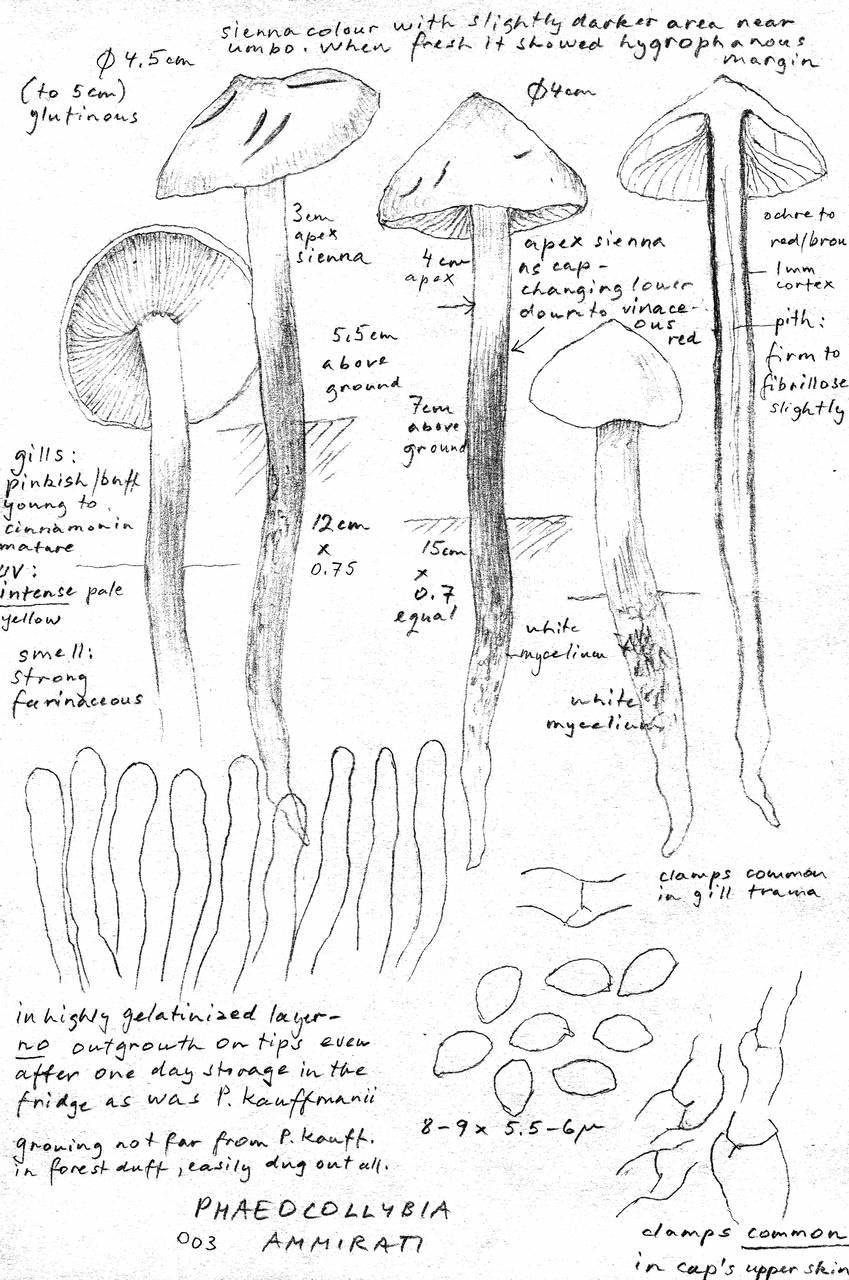 sienna colour with slightly darker area near
umbo. When fresh it showed hygrophanous
margin
Ø 4.5cm
(to 5cm)
glutinous
Ø4cm
3cm
apex
sienna
4cm
apex
apex sienna
as cap-
changing lower
down to vinace-
ous
red
ochre to
red/brow
1mm
cortex
pith:
firm to
fibrillose
slightly
5,5cm
above
ground
7cm
above
ground
gills:
pinkish/buff
young to
cinnamon in
mature
UV:
intense pale
yellow
smell:
strong
farinaceous
12cm
x
0.75
15cm
x
0.7
equal
white
mycelium
white
mycelium
clamps common
in gill trama
in highly gelatinized layer-
no outgrowth on tips even
after one day storage in the
fridge as was P. kauffmanii
growing not far from P. kauff.
in forest duff, easily dug out all.
8-9 x 5.5-6µ
PHAEOCOLLYBIA
003 AMMIRATI
clamps common
in cap's upper skin